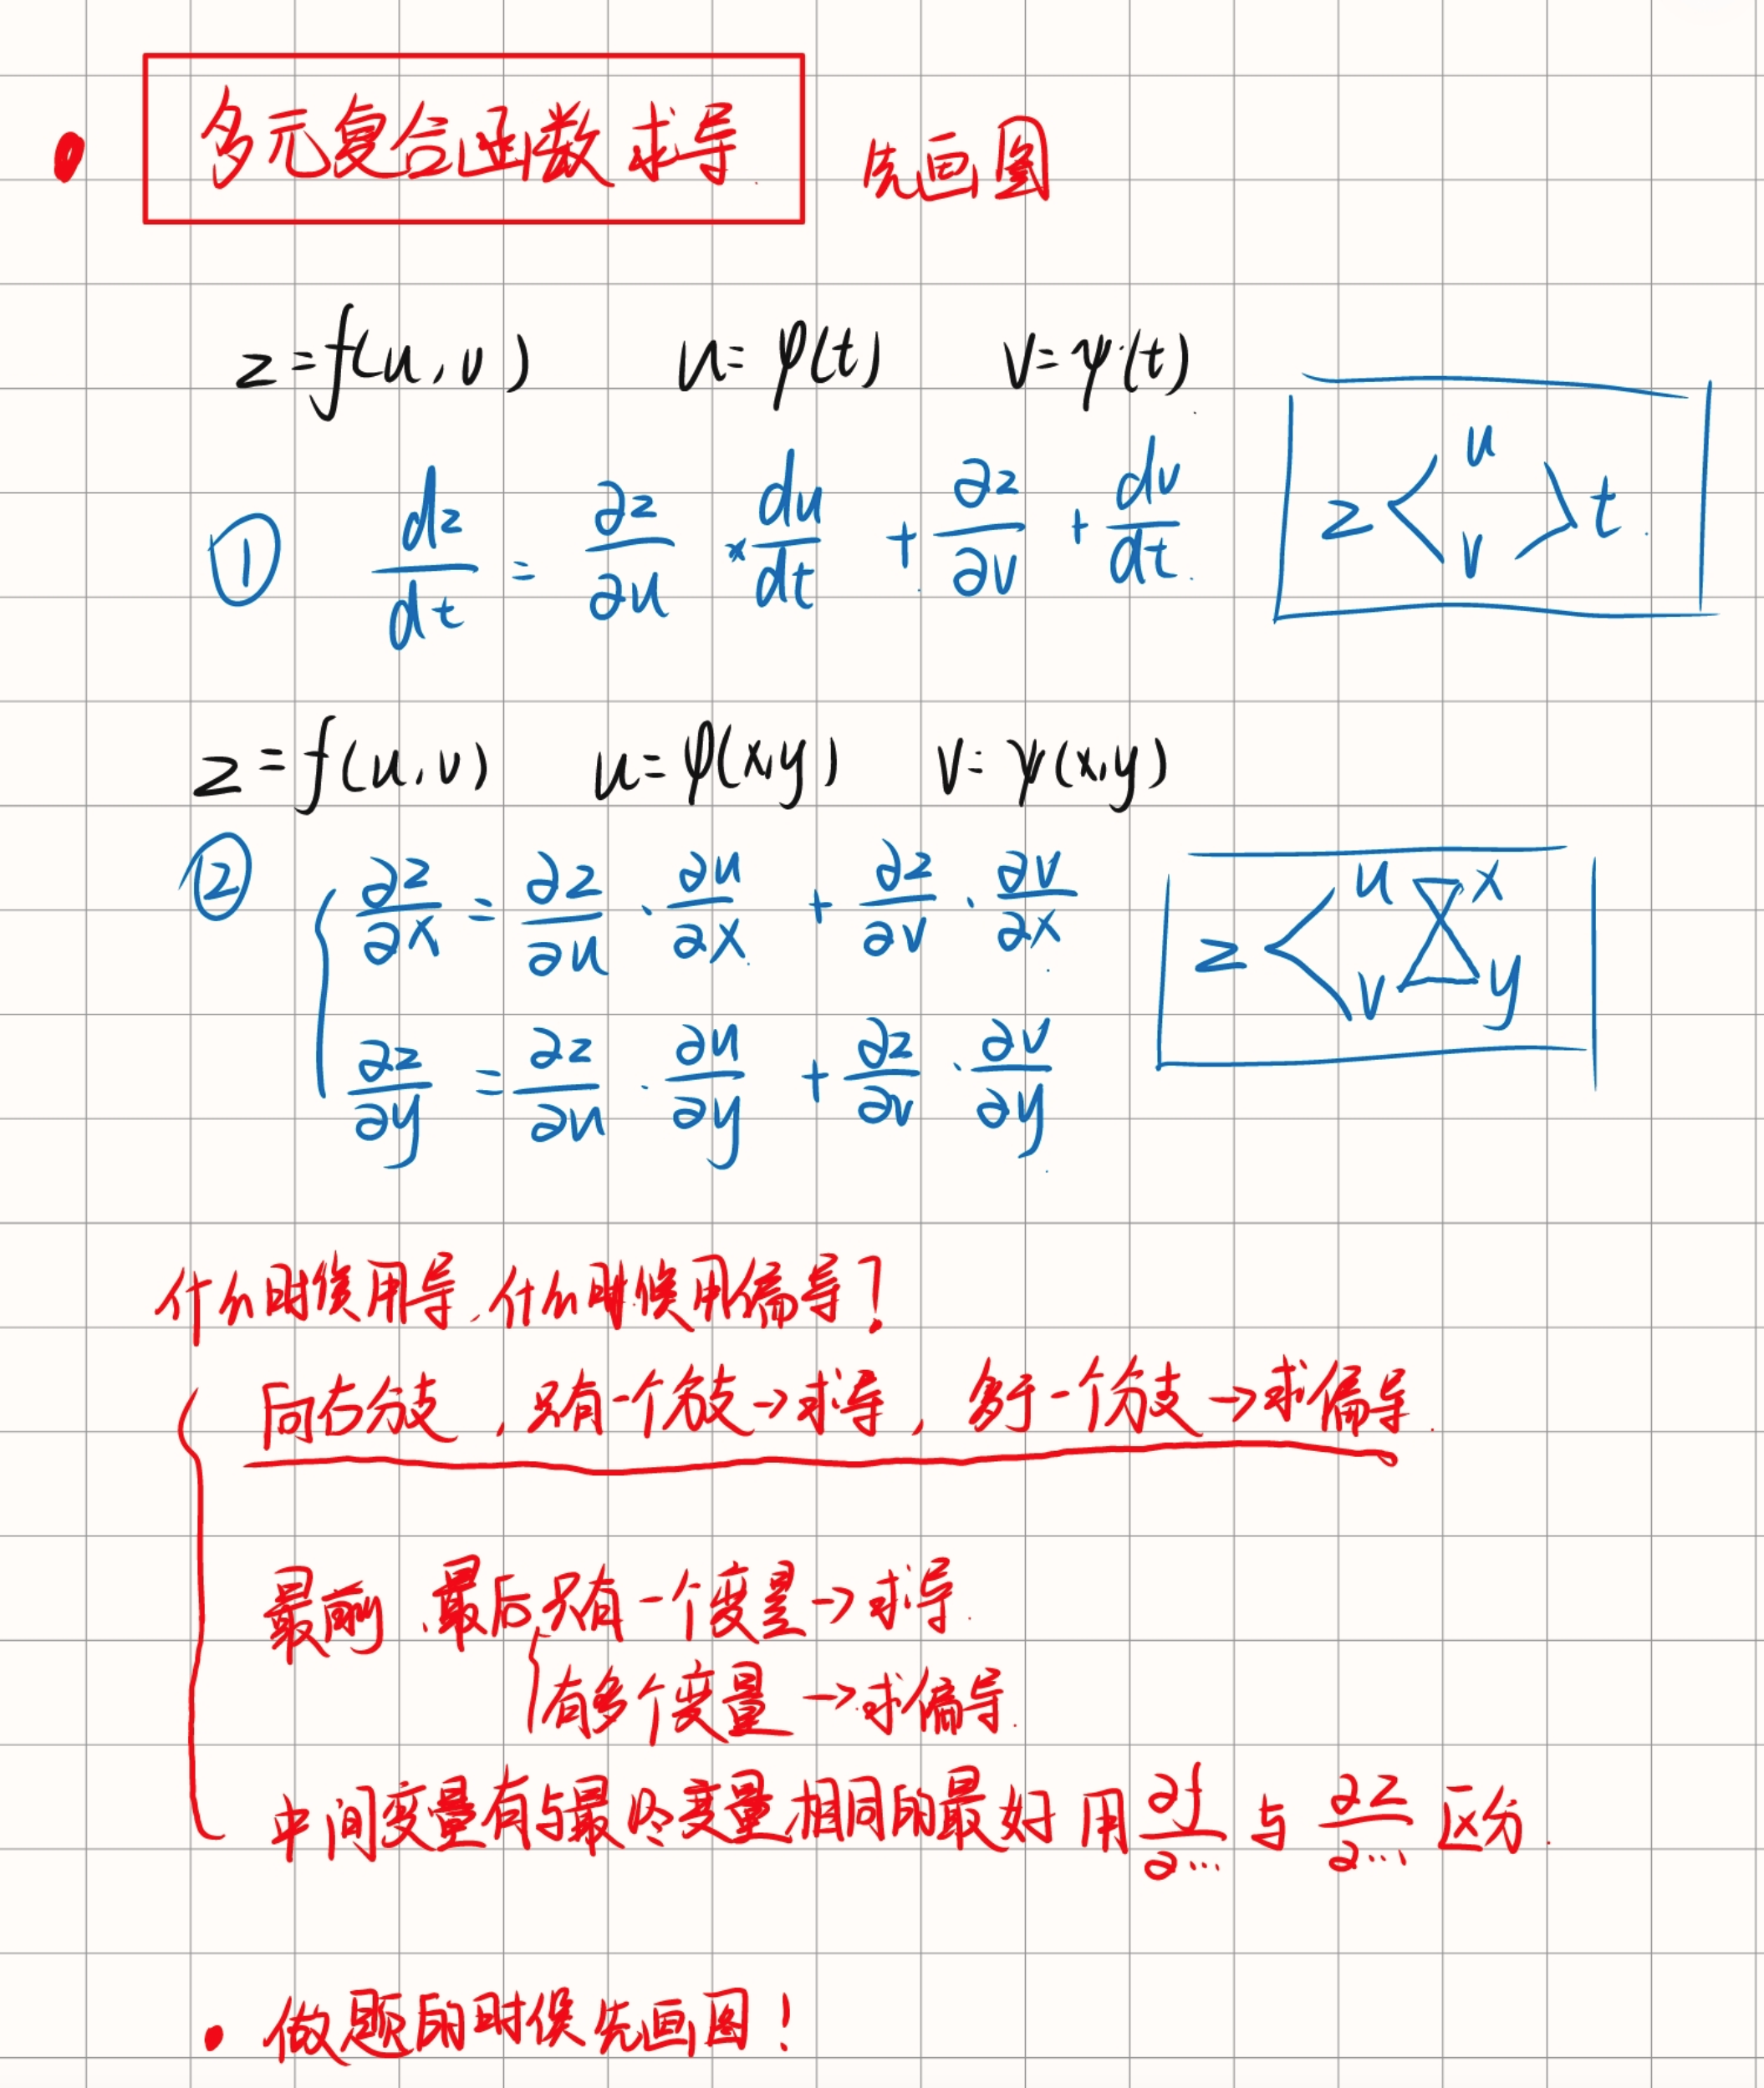 多元复合函数求导 先画图
z=f(u,v) u=φ(t) v=ψ(t)
① dz/dt = ∂z/∂u × du/dt + ∂z/∂v + dv/dt
z u v t
z=f(u,v) u=φ(x,y) v=ψ(x,y)
② ∂z/∂x = ∂z/∂u · ∂u/∂x + ∂z/∂v · ∂v/∂x
∂z/∂y = ∂z/∂u · ∂u/∂y + ∂z/∂v · ∂v/∂y
z u v x y
什么时候用导、什么时候用偏导！
向右分支，只有一个分支→求导，多于一个分支→求偏导.
最前、最后只有一个变量→求导.
有多个变量→求偏导.
中间变量有与最终变量相同的最好用 ∂f/∂... 与 ∂z/∂... 区分.
• 做题的时候先画图！